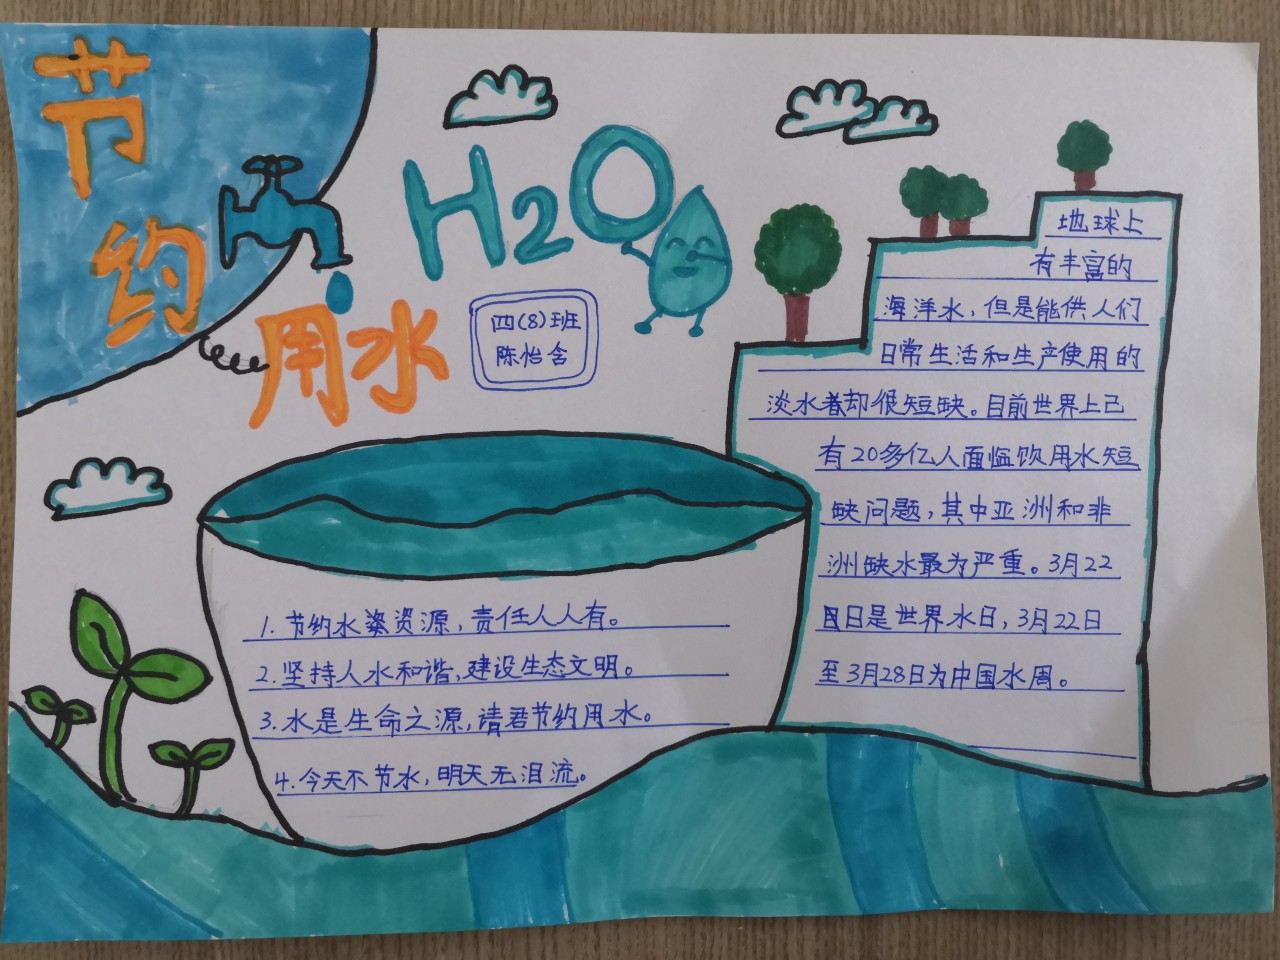 节约
用水
H2O
四(8)班
陈怡含
地球上
有丰富的
海洋水，但是能供人们
日常生活和生产使用的
淡水着却很短缺。目前世界上已
有20多亿人面临饮用水短
缺问题，其中亚洲和非
洲缺水最为严重。3月22
日是世界水日，3月22日
至3月28日为中国水周。
1. 节约水资源，责任人人有。
2. 坚持人水和谐，建设生态文明。
3. 水是生命之源，请君节约用水。
4. 今天不节水，明天无泪流。